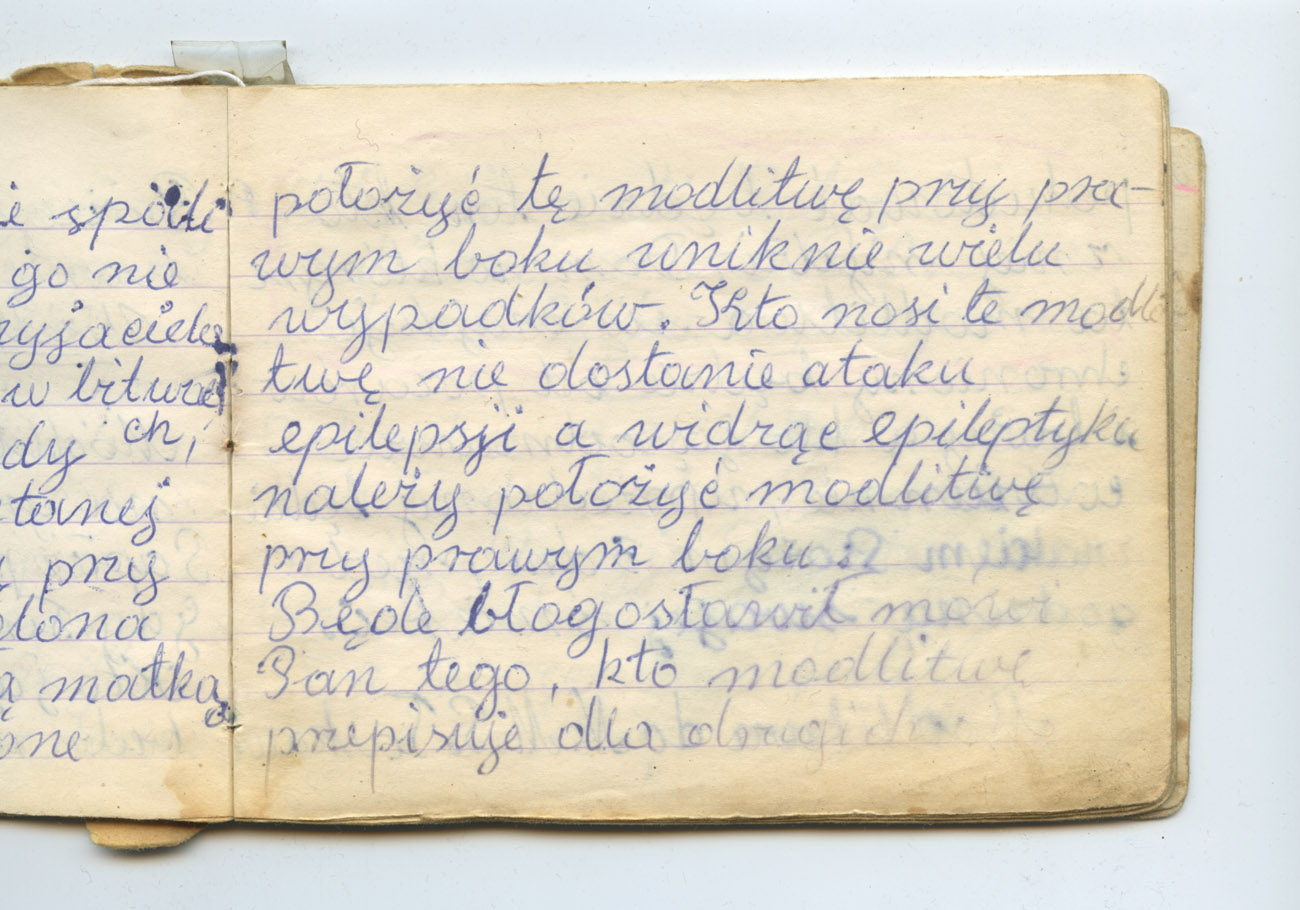 spotk
go nie
ryjaciela
w bitwa
ch,
dy
tanej
przy
ona
matka
położyć tę modlitwę przy pra-
wym boku uniknie wielu
wypadków. Kto nosi te modli
twę nie dostanie ataku
epilepsji a widząc epileptyka
należy położyć modlitwę
przy prawym boku:
Będe błogosławił mówi
Pan tego, kto modlitwę
przepisuje dla drugich